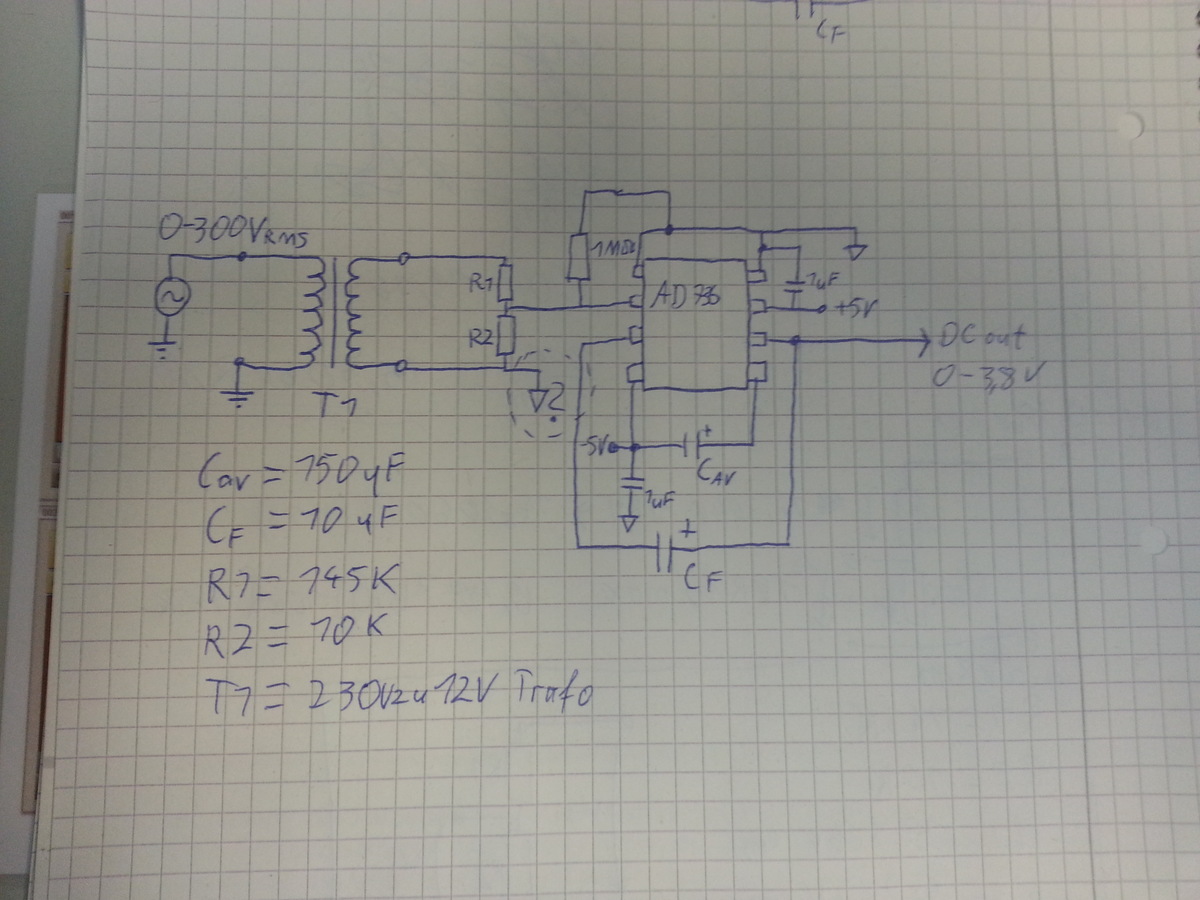 CF
0-300VRMS
R1
R2
T1
?
1MΩ
AD736
1uF
+5V
DC out
0-3,8V
-5V
+
CAV
1uF
+
CF
Cav = 150uF
CF = 10uF
R1= 145K
R2= 10K
T1= 230V zu 12V Trafo